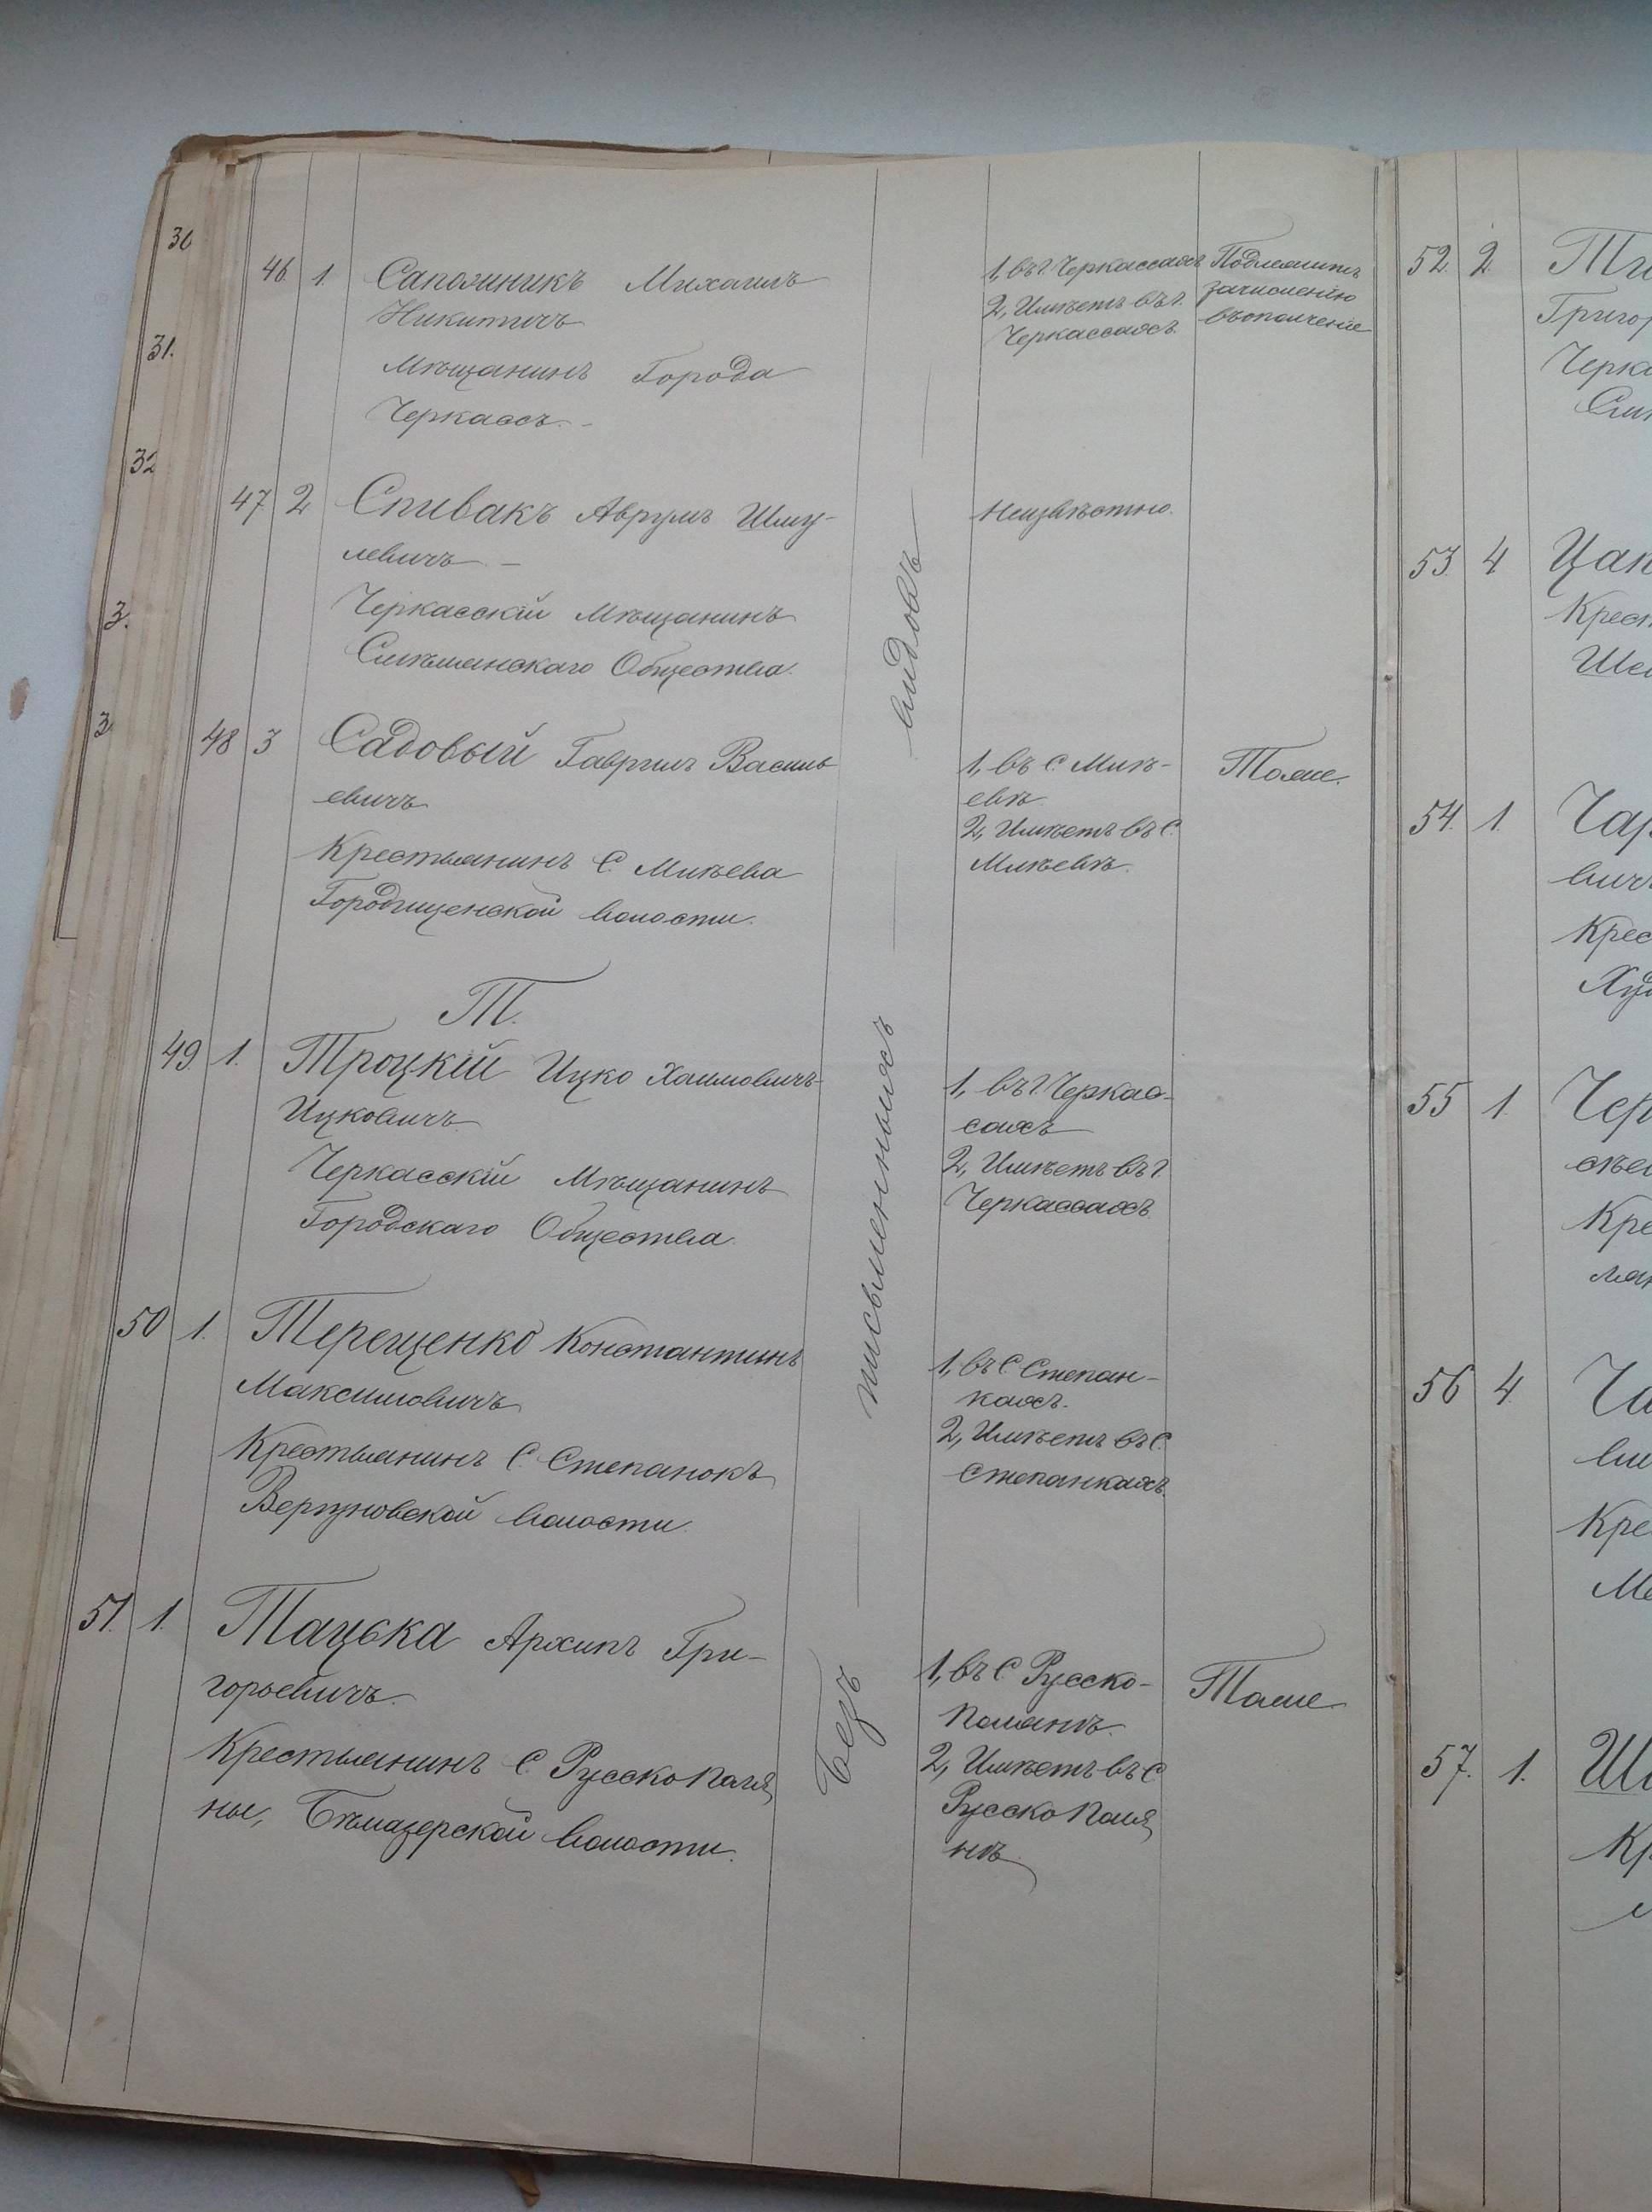 30
31.
32
3.
3
46 1. Сапожникъ Михаилъ
Никитичъ
Мѣщанинъ Города
Черкассъ.
1, въ г. Черкассахъ
2, Имѣетъ въ г.
Черкассахъ.
Подлежитъ
зачисленію
въ ополченіе
47 2 Спивакъ Аврумъ Шму-
левичъ
Черкасскій Мѣщанинъ
Смѣлянскаго Общества.
Неизвѣстно.
48 3 Садовый Гавриилъ Василь
евичъ
Крестьянинъ С. Млѣева
Городищенской волости.
1, въ С. Млѣ-
евѣ
2, Имѣетъ въ С.
Млѣевѣ.
Тоже.
Т.
49 1. Троцкій Ицко Хаимовичъ-
Ицковичъ
Черкасскій Мѣщанинъ
Городскаго Общества.
1, въ г. Черкас-
сахъ
2, Имѣетъ въ г.
Черкассахъ
50 1. Терещенко Константинъ
Максимовичъ
Крестьянинъ С. Степанокъ
Вергуновской волости.
1, въ С Степан-
кахъ.
2, Имѣетъ въ С.
Степанкахъ.
51. 1. Тацька Архипъ Гри-
горьевичъ.
Крестьянинъ С. Русско Поля
ны, Бѣлазерской волости.
1, въ С Русско-
Полянѣ.
2, Имѣетъ въ С
Русско Поля
нѣ
Тоже
Безъ — письменныхъ — видовъ —
52. 2
Григор
Черка
53. 4 Цап
Крест
Ше
54. 1. Чар
вичъ
Крес
Худ
55 1. Чер
Кре
56 4. Ча
Кре
57. 1.
Кр